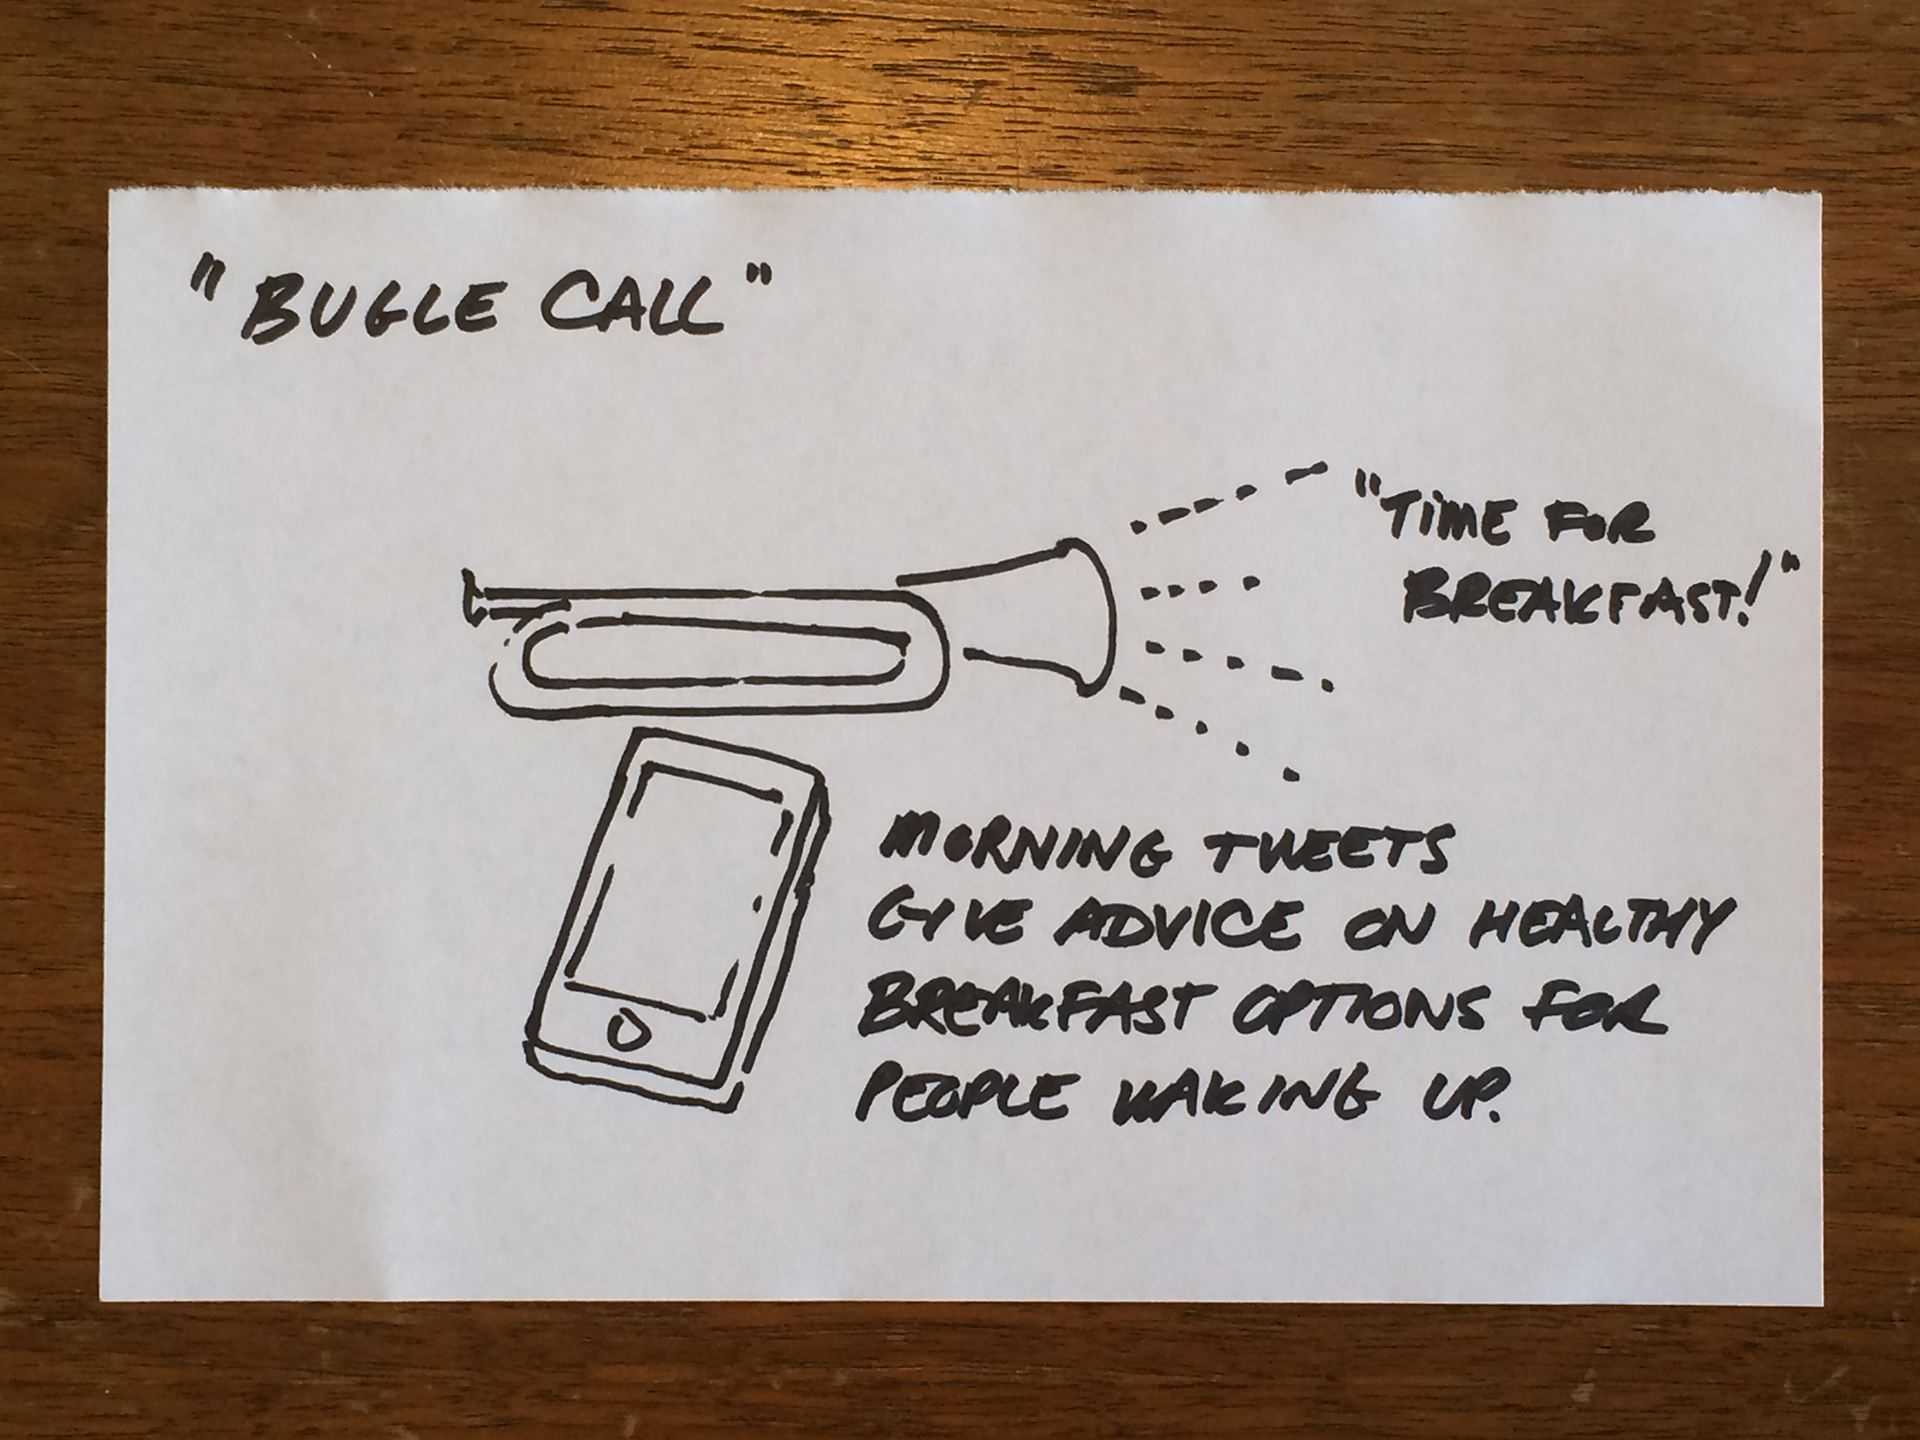 "BUGLE CALL"
"TIME FOR
BREAKFAST!"
MORNING TWEETS
GIVE ADVICE ON HEALTHY
BREAKFAST OPTIONS FOR
PEOPLE WAKING UP.